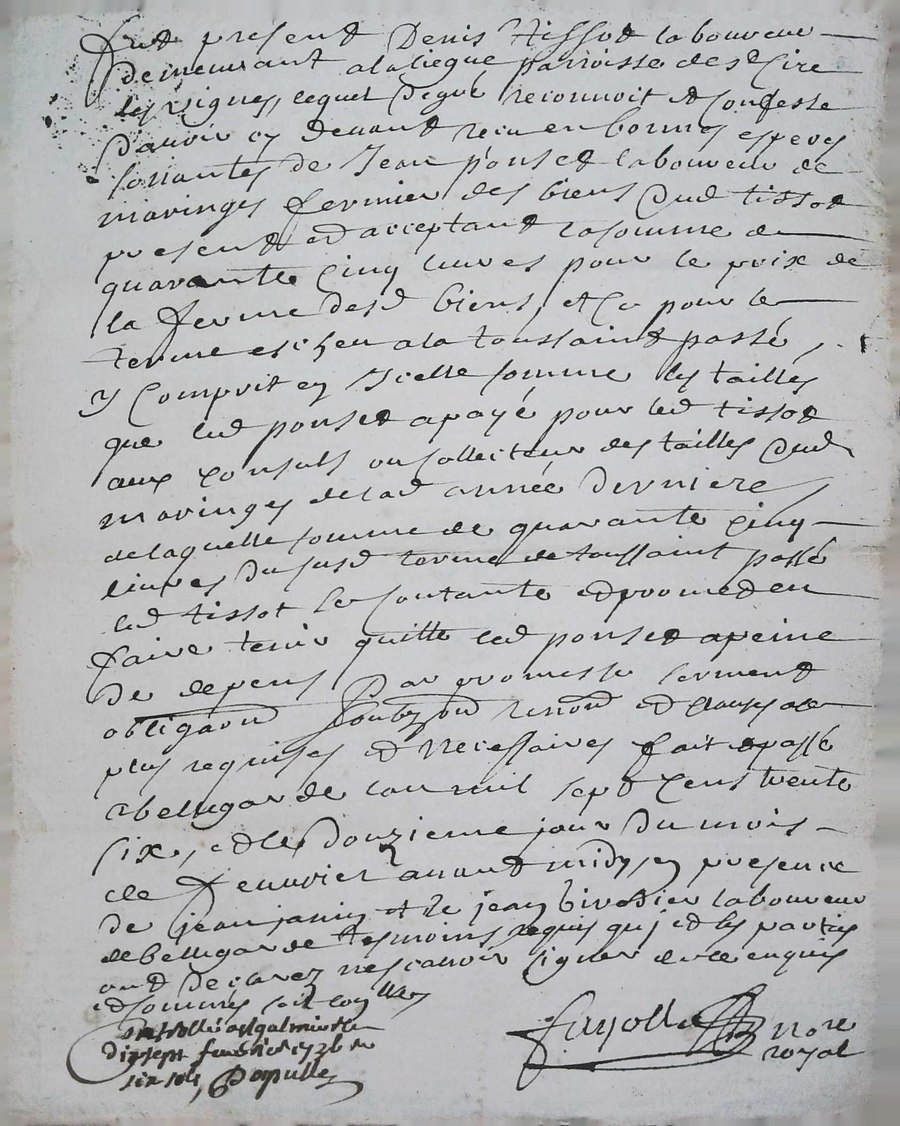 fut present Denis Tissot laboureur
demeurant a la liegue parroisse de st Cire
les vignes, lequel de gré reconnoit et confesse
d'avoir cy devant receu en bonnes especes
sonantes de Jean ponset laboureur de
maringes fermier des biens dud tissot
present et acceptant la somme de
quarante cinq livres pour le prix de
la ferme desd biens, et ce pour le
terme escheu a la toussaint passé,
y Comprit en Icelle somme les tailles
que led ponset a payé pour led tissot
aux consuls ou collecteur des tailles dud
maringes de lad année derniere
de laquelle somme de quarante cinq
livres du susd terme de toussaint passé
led tissot se contante et promed en
faire tenir quitte led ponset a peine
de depens Par promesse serment
obligaon renon et clauses
plus requises et necessaires fait et passé
a bellegarde lan mil sept cens trente
six, et le douzieme jour du mois
de fevrier avant midy, en presence
de jean janin et de jean laboureur
de bellegarde tesmoins requis qui et les parties
ont declarez ne scavoir signer de ce enquis
et sommés
Fayolle nore
royal
controllé a st galmier le
dix sept fevrier 1736 r
six sols, Populle